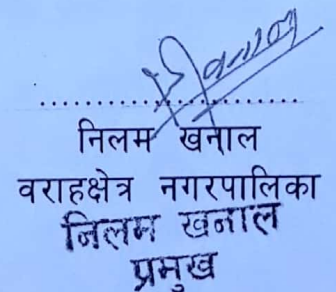 ....................................
निलम खनाल
वराहक्षेत्र नगरपालिका
निलम खनाल
प्रमुख